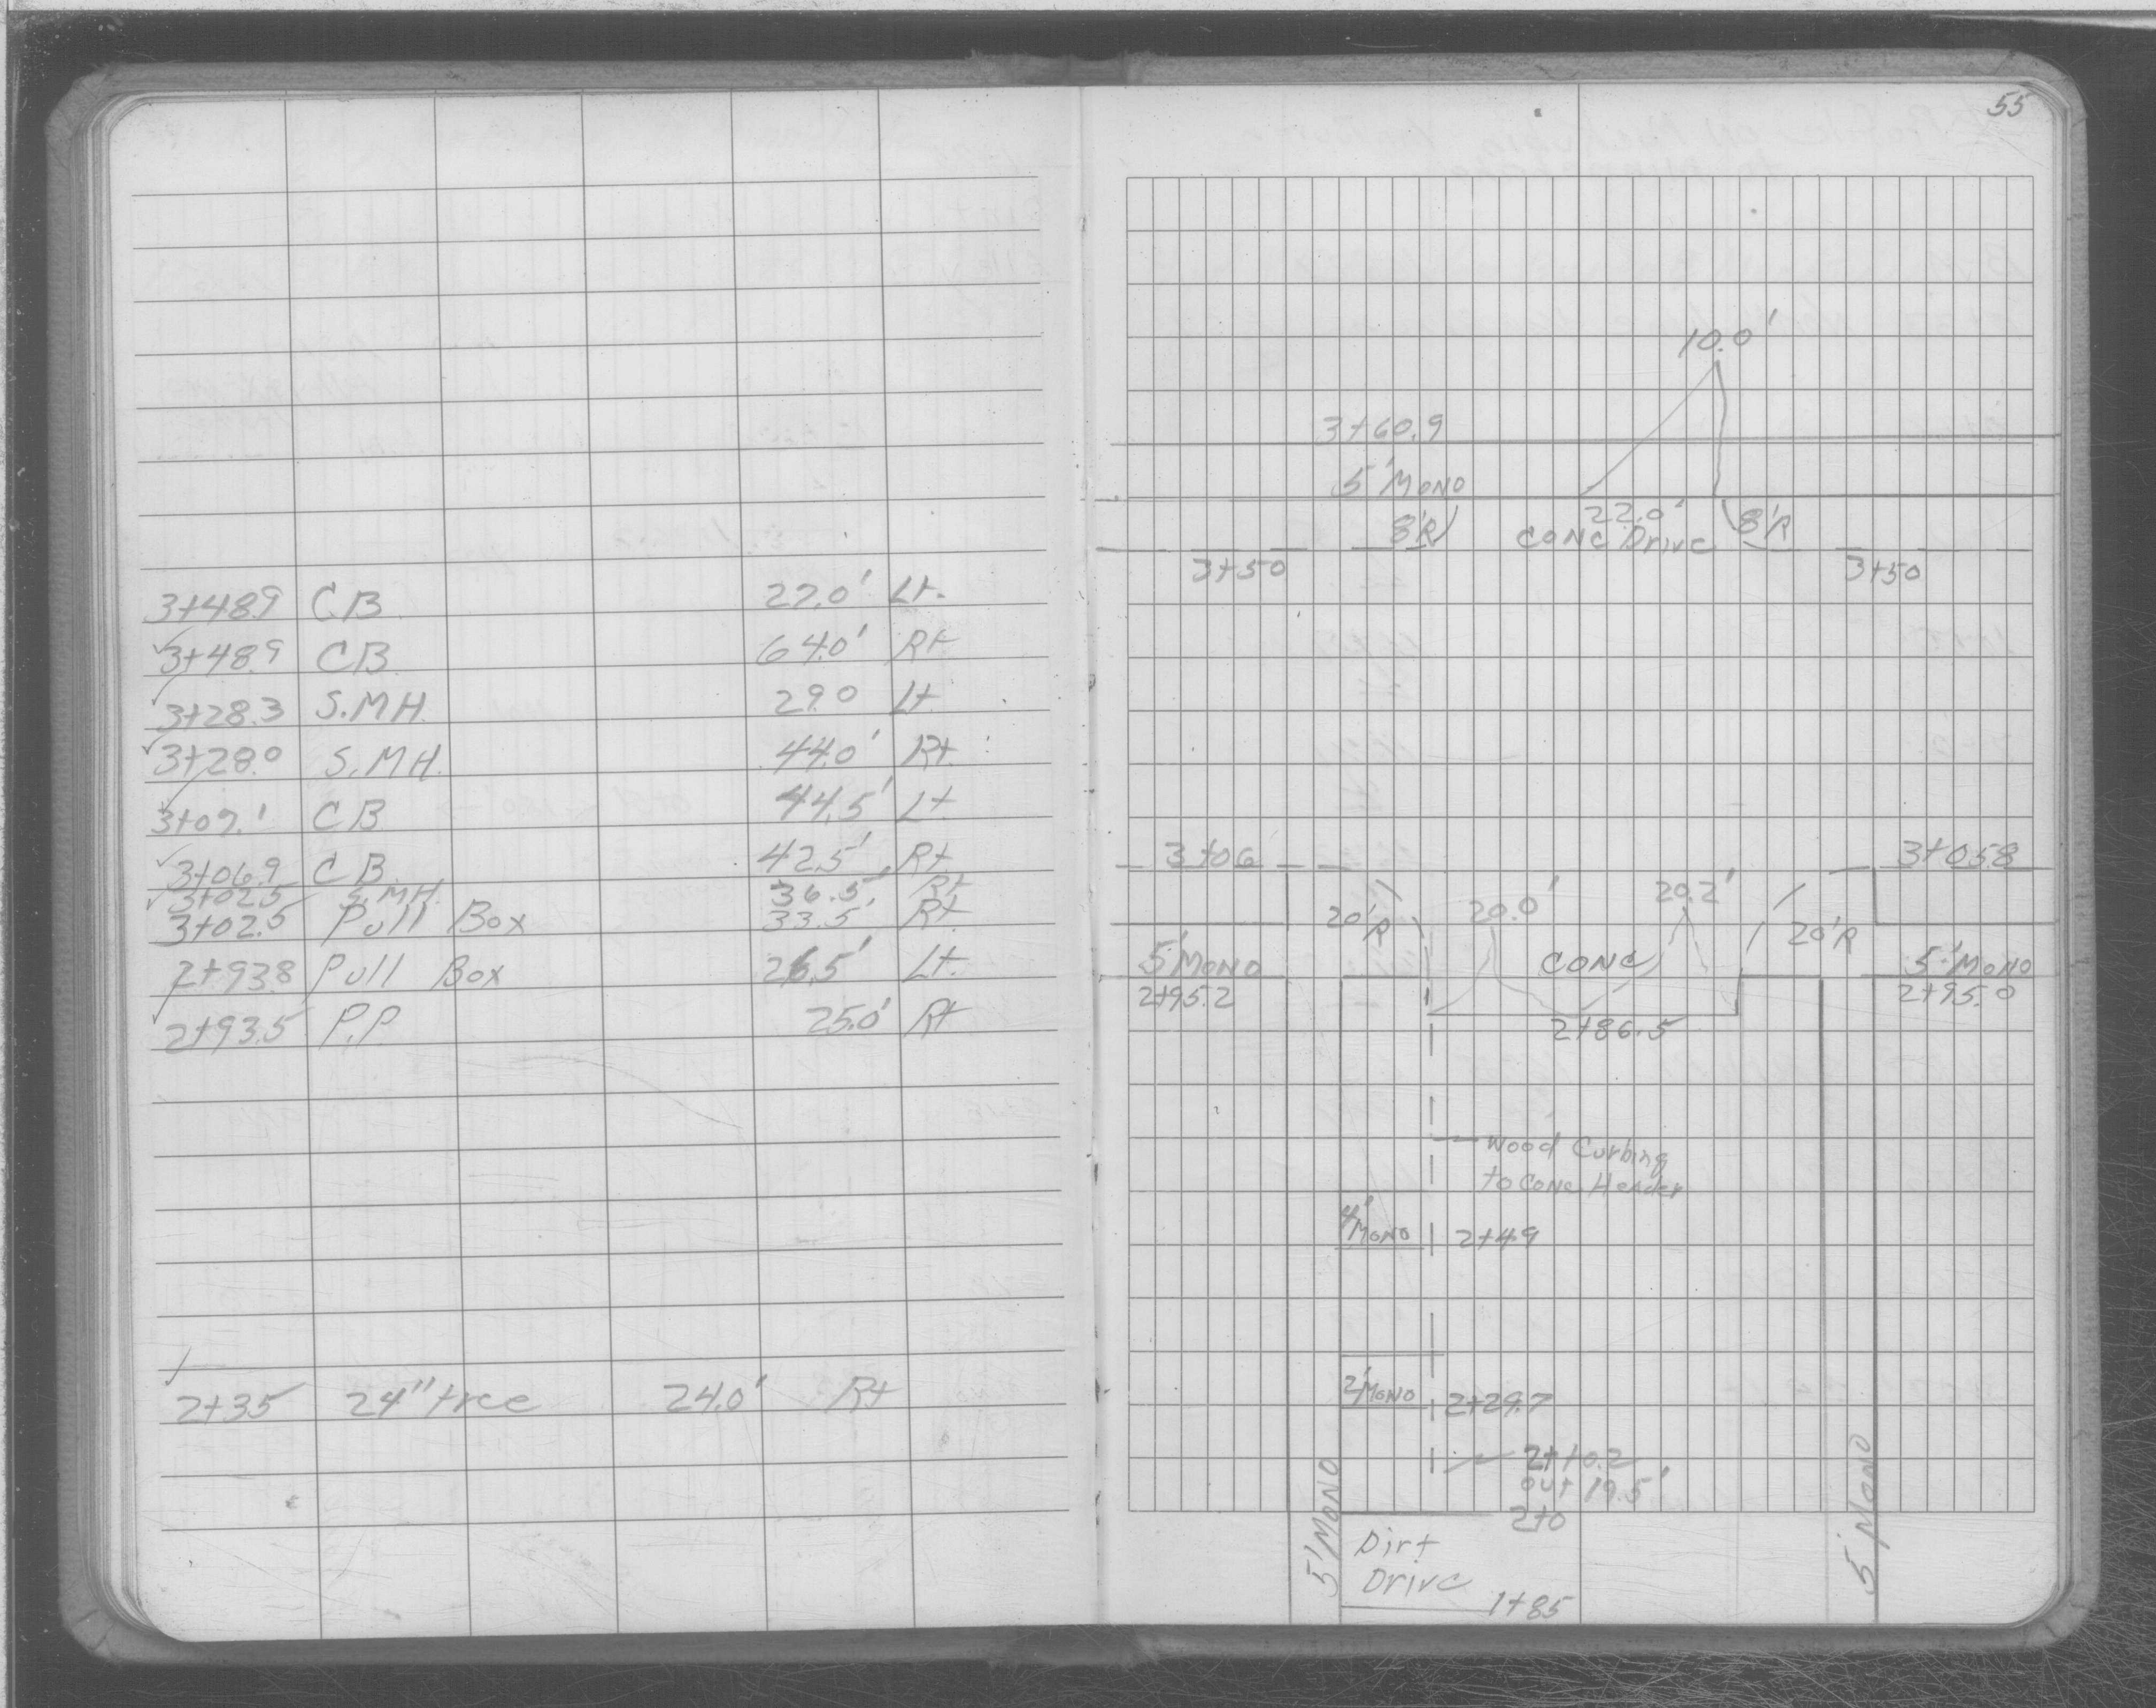 3+48.9 CB 22.0' Lt.
3+48.9 CB 64.0' Rt
3+28.3 S.MH. 29.0 Lt
3+28.0 S.MH. 44.0' Rt.
3+07.1 CB 44.5' Lt
3+06.9 CB 42.5' Rt
3+02.5 S.MH. 36.5' Rt
3+02.5 Pull Box 33.5' Rt
2+93.8 Pull Box 26.5' Lt.
2+93.5 P.P. 25.0' Rt
2+35 24" tree 24.0' Rt
55
10.0'
3+60.9
5' MONO
8'R 22.0' 8'R
CONC Drive
3+50 3+50
3+06 3+05.8
20'R 20.0' 20.2' 20'R
5' MONO CONC 5' MONO
2+95.2 2+95.0
2+86.5
Wood Curbing
to Conc Header
4' MONO 2+49
2' MONO 2+29.7
2+10.2
out 19.5'
2+0
5' MONO 5' MONO
Dirt
Drive
1+85